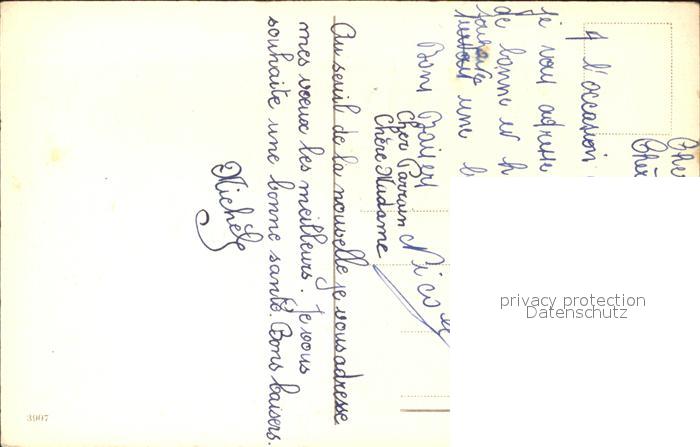 Chè
Chèr
A l'occasion
je vous adresse
de bonne et h
souhaite
surtout une b
Bons Baisers
Nicole
Cher Parrain
Chère Madame
Au seuil de la nouvelle je vous adresse
mes voeux les meilleurs. Je vous
souhaite une bonne santé. Bons baisers.
Michèle
3907
privacy protection
Datenschutz